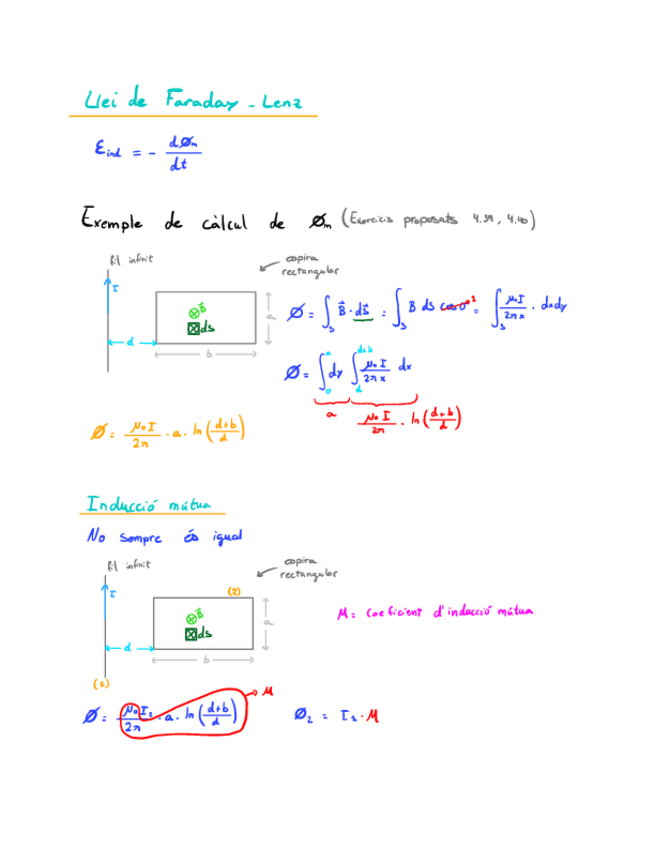 Llei de Faraday - Lenz
Ɛind = - dØm / dt
Exemple de càlcul de Øm (Exercicis proposats 4.39, 4.40)
fil infinit
espira rectangular
I
B⃗
ds
a
d
b
Ø = ∫s B⃗ · ds⃗ = ∫s B ds cos 0° 1 = ∫s μ₀I / 2πx · dxdy
Ø = ∫₀ᵃ dy ∫_d^{d+b} μ₀I / 2πx dx
a   μ₀I / 2π · ln (d+b / d)
Ø = μ₀I / 2π · a · ln (d+b / d)
Inducció mútua
No sempre és igual
fil infinit
espira rectangular
I
(2)
B⃗
ds
a
M = Coeficient d'inducció mútua
d
b
(1)
Ø = μ₀I₁ / 2π · a · ln (d+b / d) → M
Ø₂ = I₁ · M